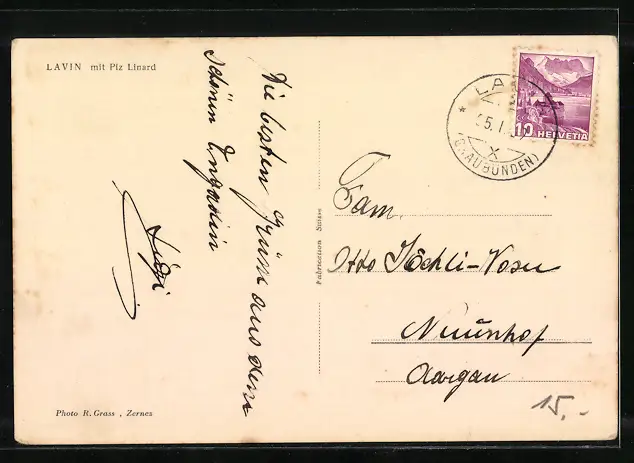 LAVIN mit Piz Linard
Die besten Grüsse aus dem
schönen Engadin
Luzi
Photo R. Grass , Zernes
Fabrication Suisse
LA
5. I.
X
(GRAUBÜNDEN)
10 HELVETIA
Fam.
Otto
Neuenhof
Aargau
15.-